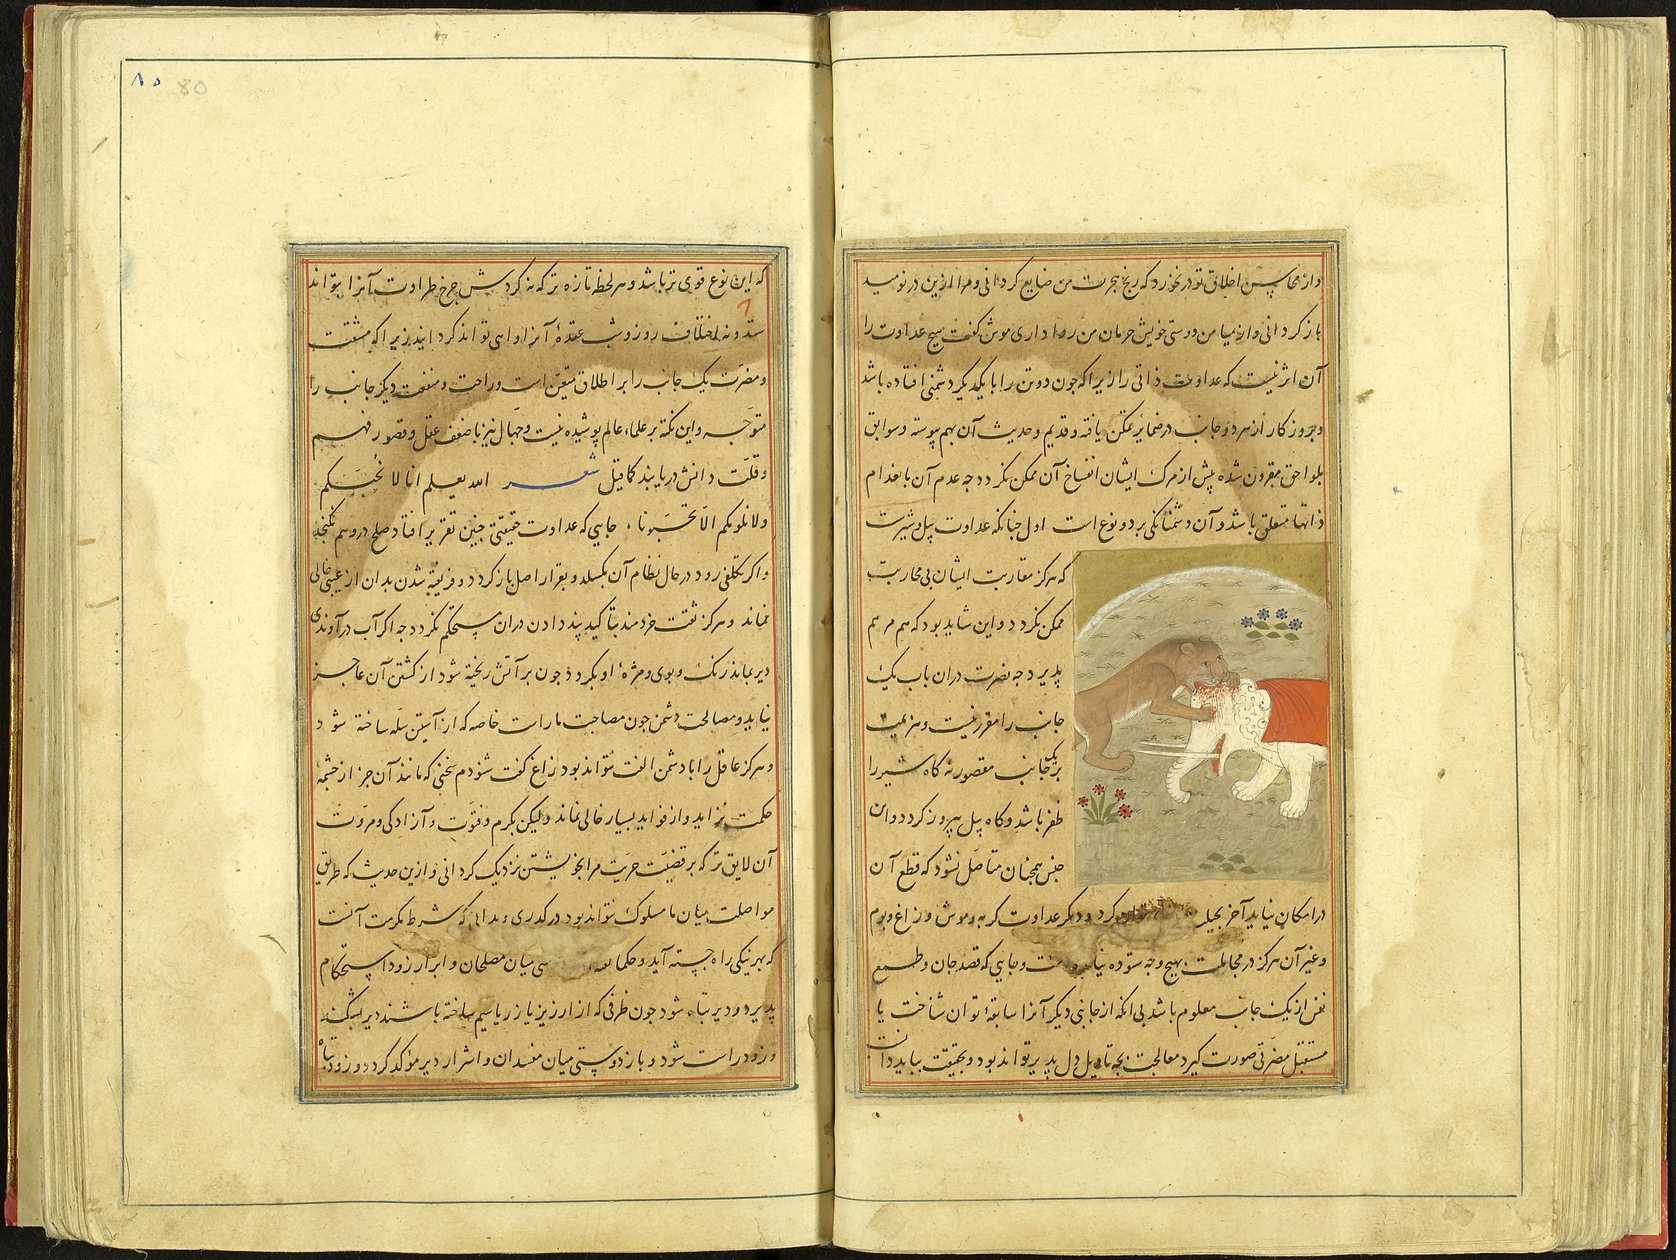 واز محاسن اخلاق تو درنخورد که رنج هجرت من ضایع گردانی و مرا ازین در نومید
باز گردانی واز میامن دوستی خویش حرمان من روا داری موش گفت هیچ عداوت را
آن اثر نیست که عداوت ذاتی را زیرا که چون دو تن را با یکدیگر دشمنی افتاده باشد
و بروزکار از هر دو جانب در ضمایر تمکن یافته و قدیم و حدیث آن بهم پیوسته و سوابق
بلواحق مقرون شده پیش از مرک ایشان انفساخ آن ممکن نگردد چه عدم آن بانعدام
ذاتها متعلق باشد و آن دشمنانگی بر دو نوع است اول چنانکه عداوت پیل و شیرست
که هرکز مقاربت ایشان بی محاربت
ممکن نگردد و این شاید بود که هم مرهم
پذیرد چه نصرت دران باب یک
جانب را مقرر نیست و هزیمت
بر یکجانب مقصور نه گاه شیر را
ظفر باشد و گاه پیل پیروز گردد و این
جنس همچنان متأصل نشود که قطع آن
در امکان نیاید آخر بحیلت گردد و دیگر عداوت گربه و موش و زاغ و بوم
و غیر آن هرگز در مجاملت بهیچ وجه ستوده نیامده و جایی که قصد جان و طمع
نفس از یک جانب معلوم باشد بی انکه از جانبی دیگر آنرا سابقه توان شناخت یا
مستقبل مضرتی صورت گیرد معالجت بچه تاویل دل پذیر تواند بود و بحقیقت بباید دانست
که این نوع قوی تر باشد و هر لحظه تازه تر که نه گردش چرخ طراوت آنرا بتواند
ستد و نه اختلاف روز و شب عقدهٔ آنرا واهی تواند گردانید زیرا که مشقت
و مضرت یک جانب را بر اطلاق متعین است و راحت و منفعت دیگر جانب را
متوجه و این نکته بر علماء عالم پوشیده نیست و جهال نیز با ضعف عقل و قصور فهم
و قلّت دانش دریابند کما قیل شعر الله یعلم انا لا نحبکم
ولا نلومکم الا تحبونا جایی که عداوت حقیقی چنین تقریر افتاد صلح در وهم نگنجد
و اگر تکلفی رود در حال نظام آن بگسلد و بقرار اصل باز گردد و فریفته شدن بدان از عیبی خالی
نماند و هرگز ثقت خردمند بتاکید پند دادن دران مستحکم نگردد چه اگر آب در آوندی
دیر بماند رنگ و بوی و مزهٔ او بگردد چون بر آتش ریخته شود از کشتن آن عاجز
نیاید و مصالحت دشمن چون مصاحبت مار است خاصه که از آستین سله ساخته شود
و هرگز عاقل را با دشمن الفت نتواند بود زاغ گفت شنودم سخنی که مانند آن جز از چشمهٔ
حکمت نزاید و از فواید بسیار خالی نماند ولیکن بکرم و فتوّت و آزادگی و مروّت
آن لایق تر که بر قضیت حریت مرا بخویشتن نزدیک گردانی و ازین حدیث که طریق
مواصلت میان ما مسلوک نتواند بود درگذری و بدانی که شرط مکرمت آنست
که بهر نیکی راه جسته آید و حکما میان مصلحان و ابرار زود استحکام
پذیرد و دیر تباه شود چون ظرفی که از ارزیز یا زر یا سیم ساخته باشند دیر شکند
و زود راست شود و باز دوستی میان مفسدان و اشرار دیر مؤکد گردد و زود تباه
۸۰ 80